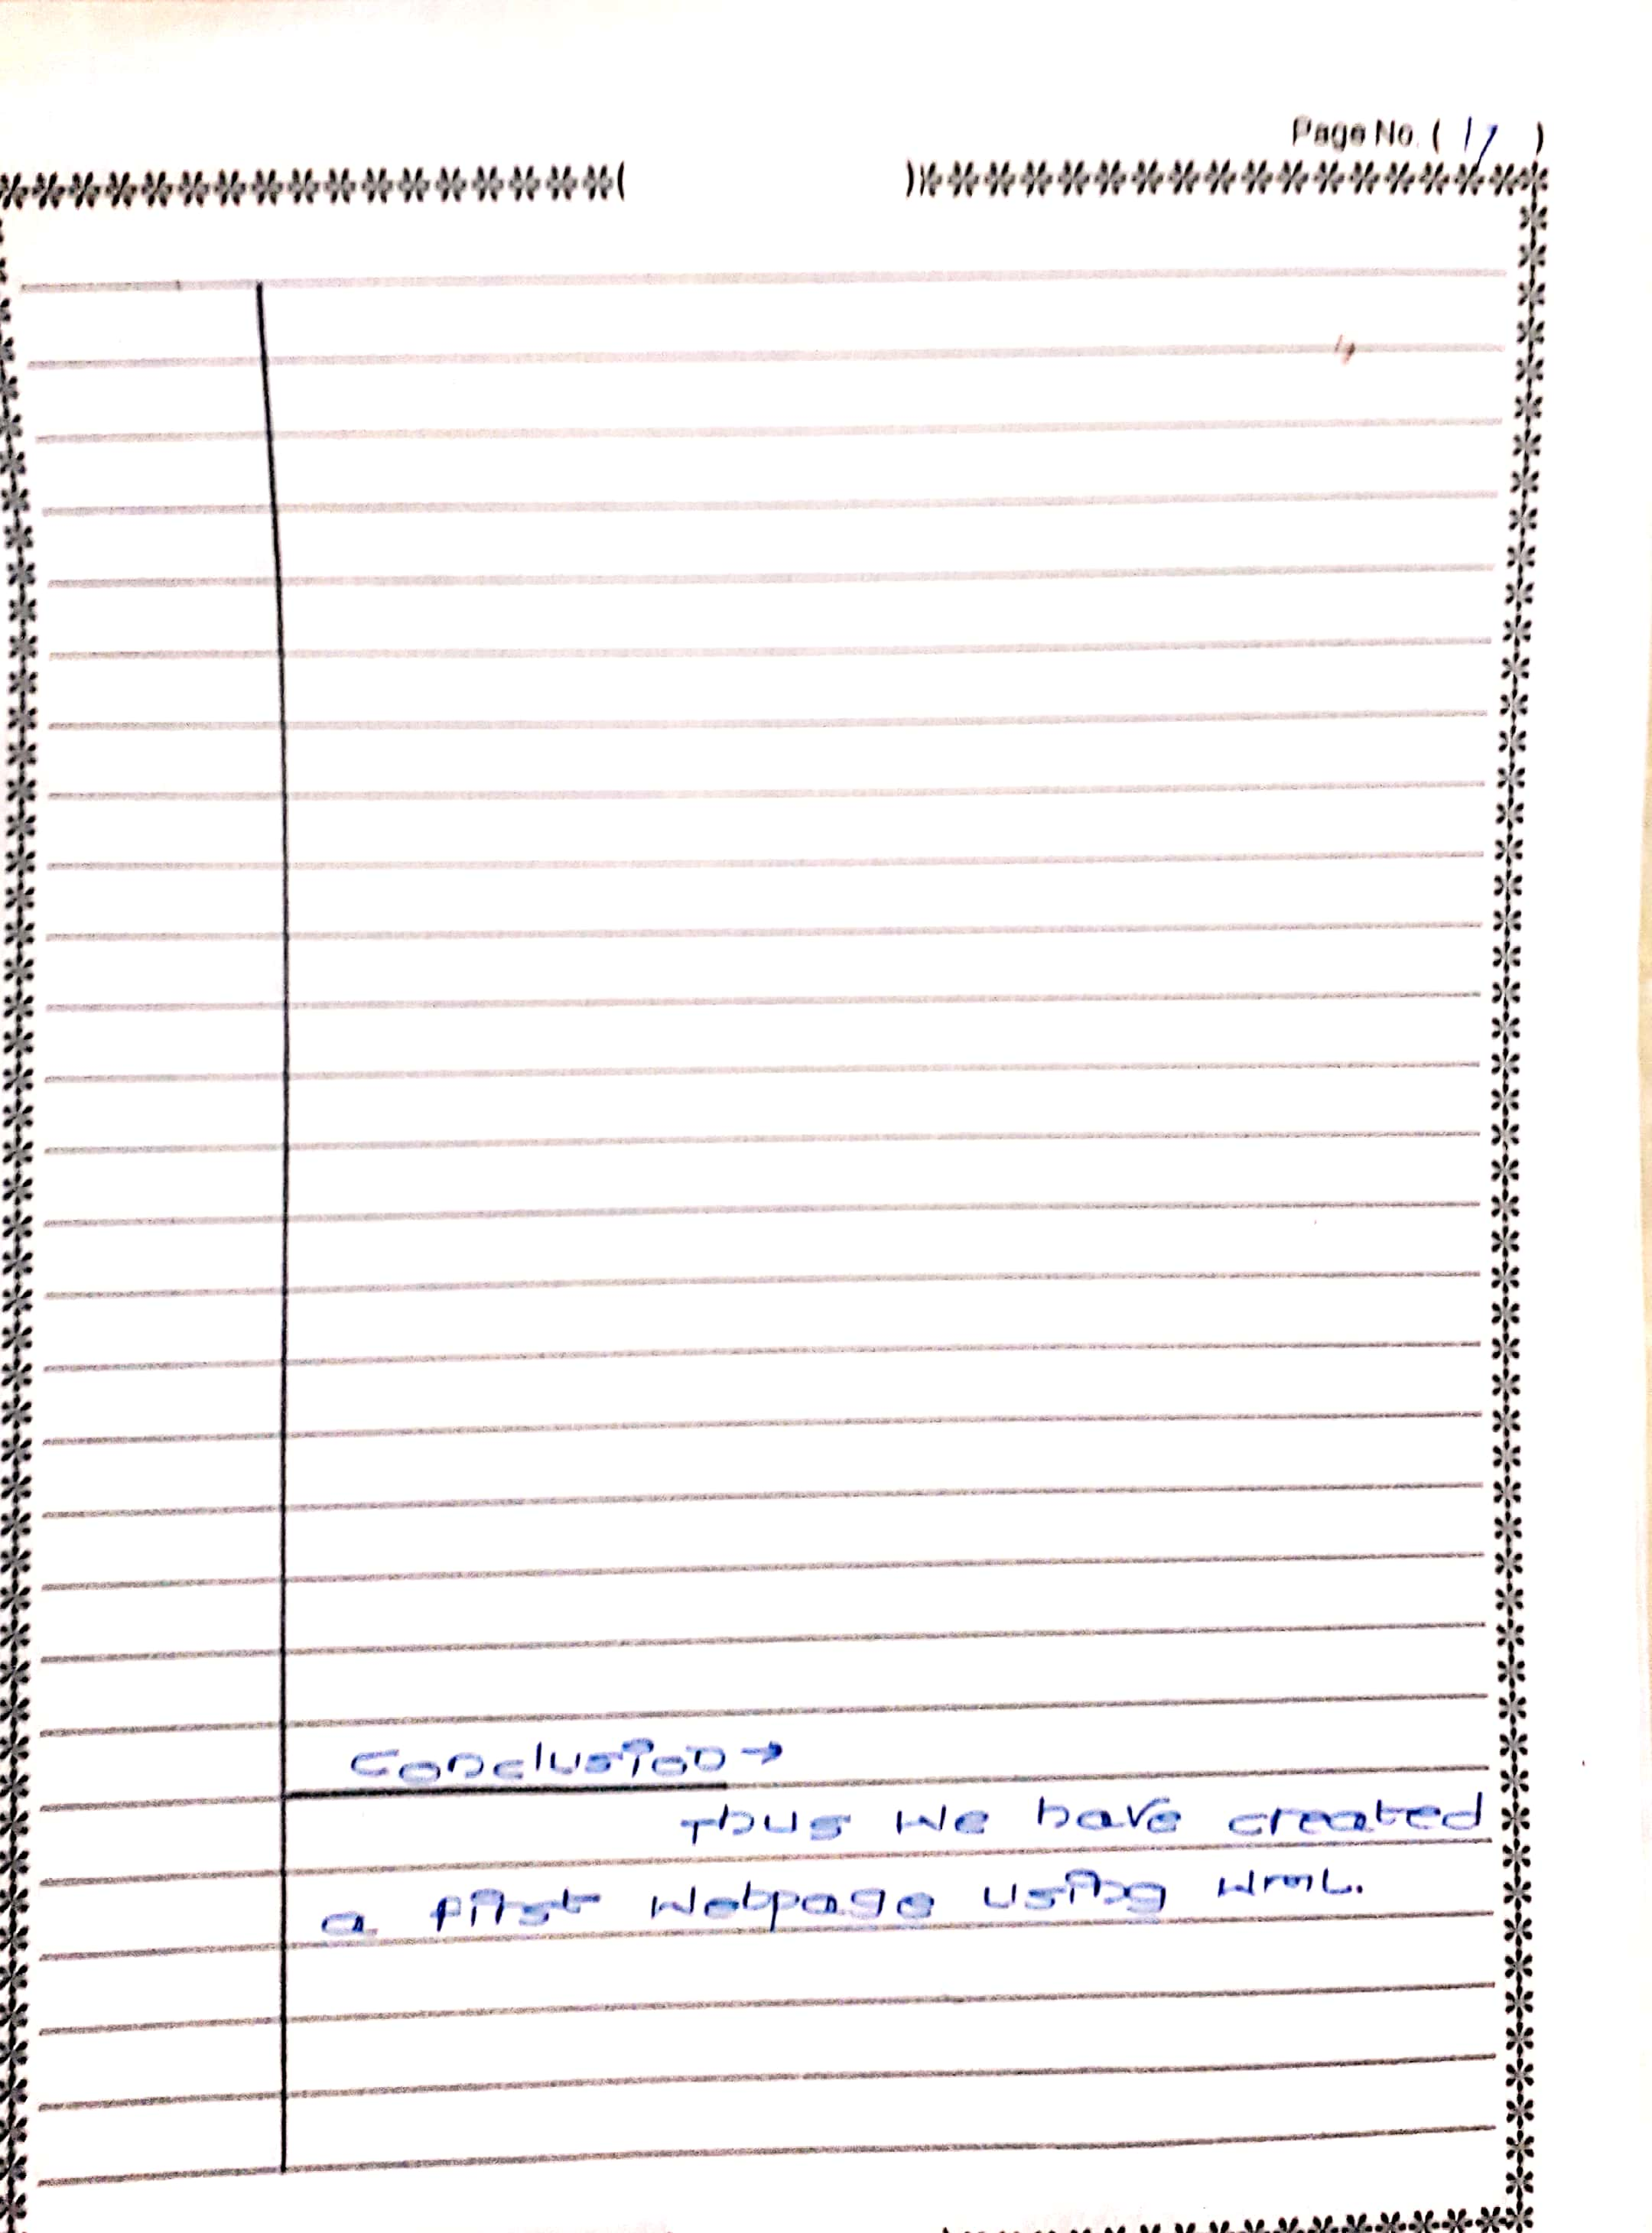 Page No. ( 17 )
Conclusion →
Thus we have created
a first webpage using HTML.